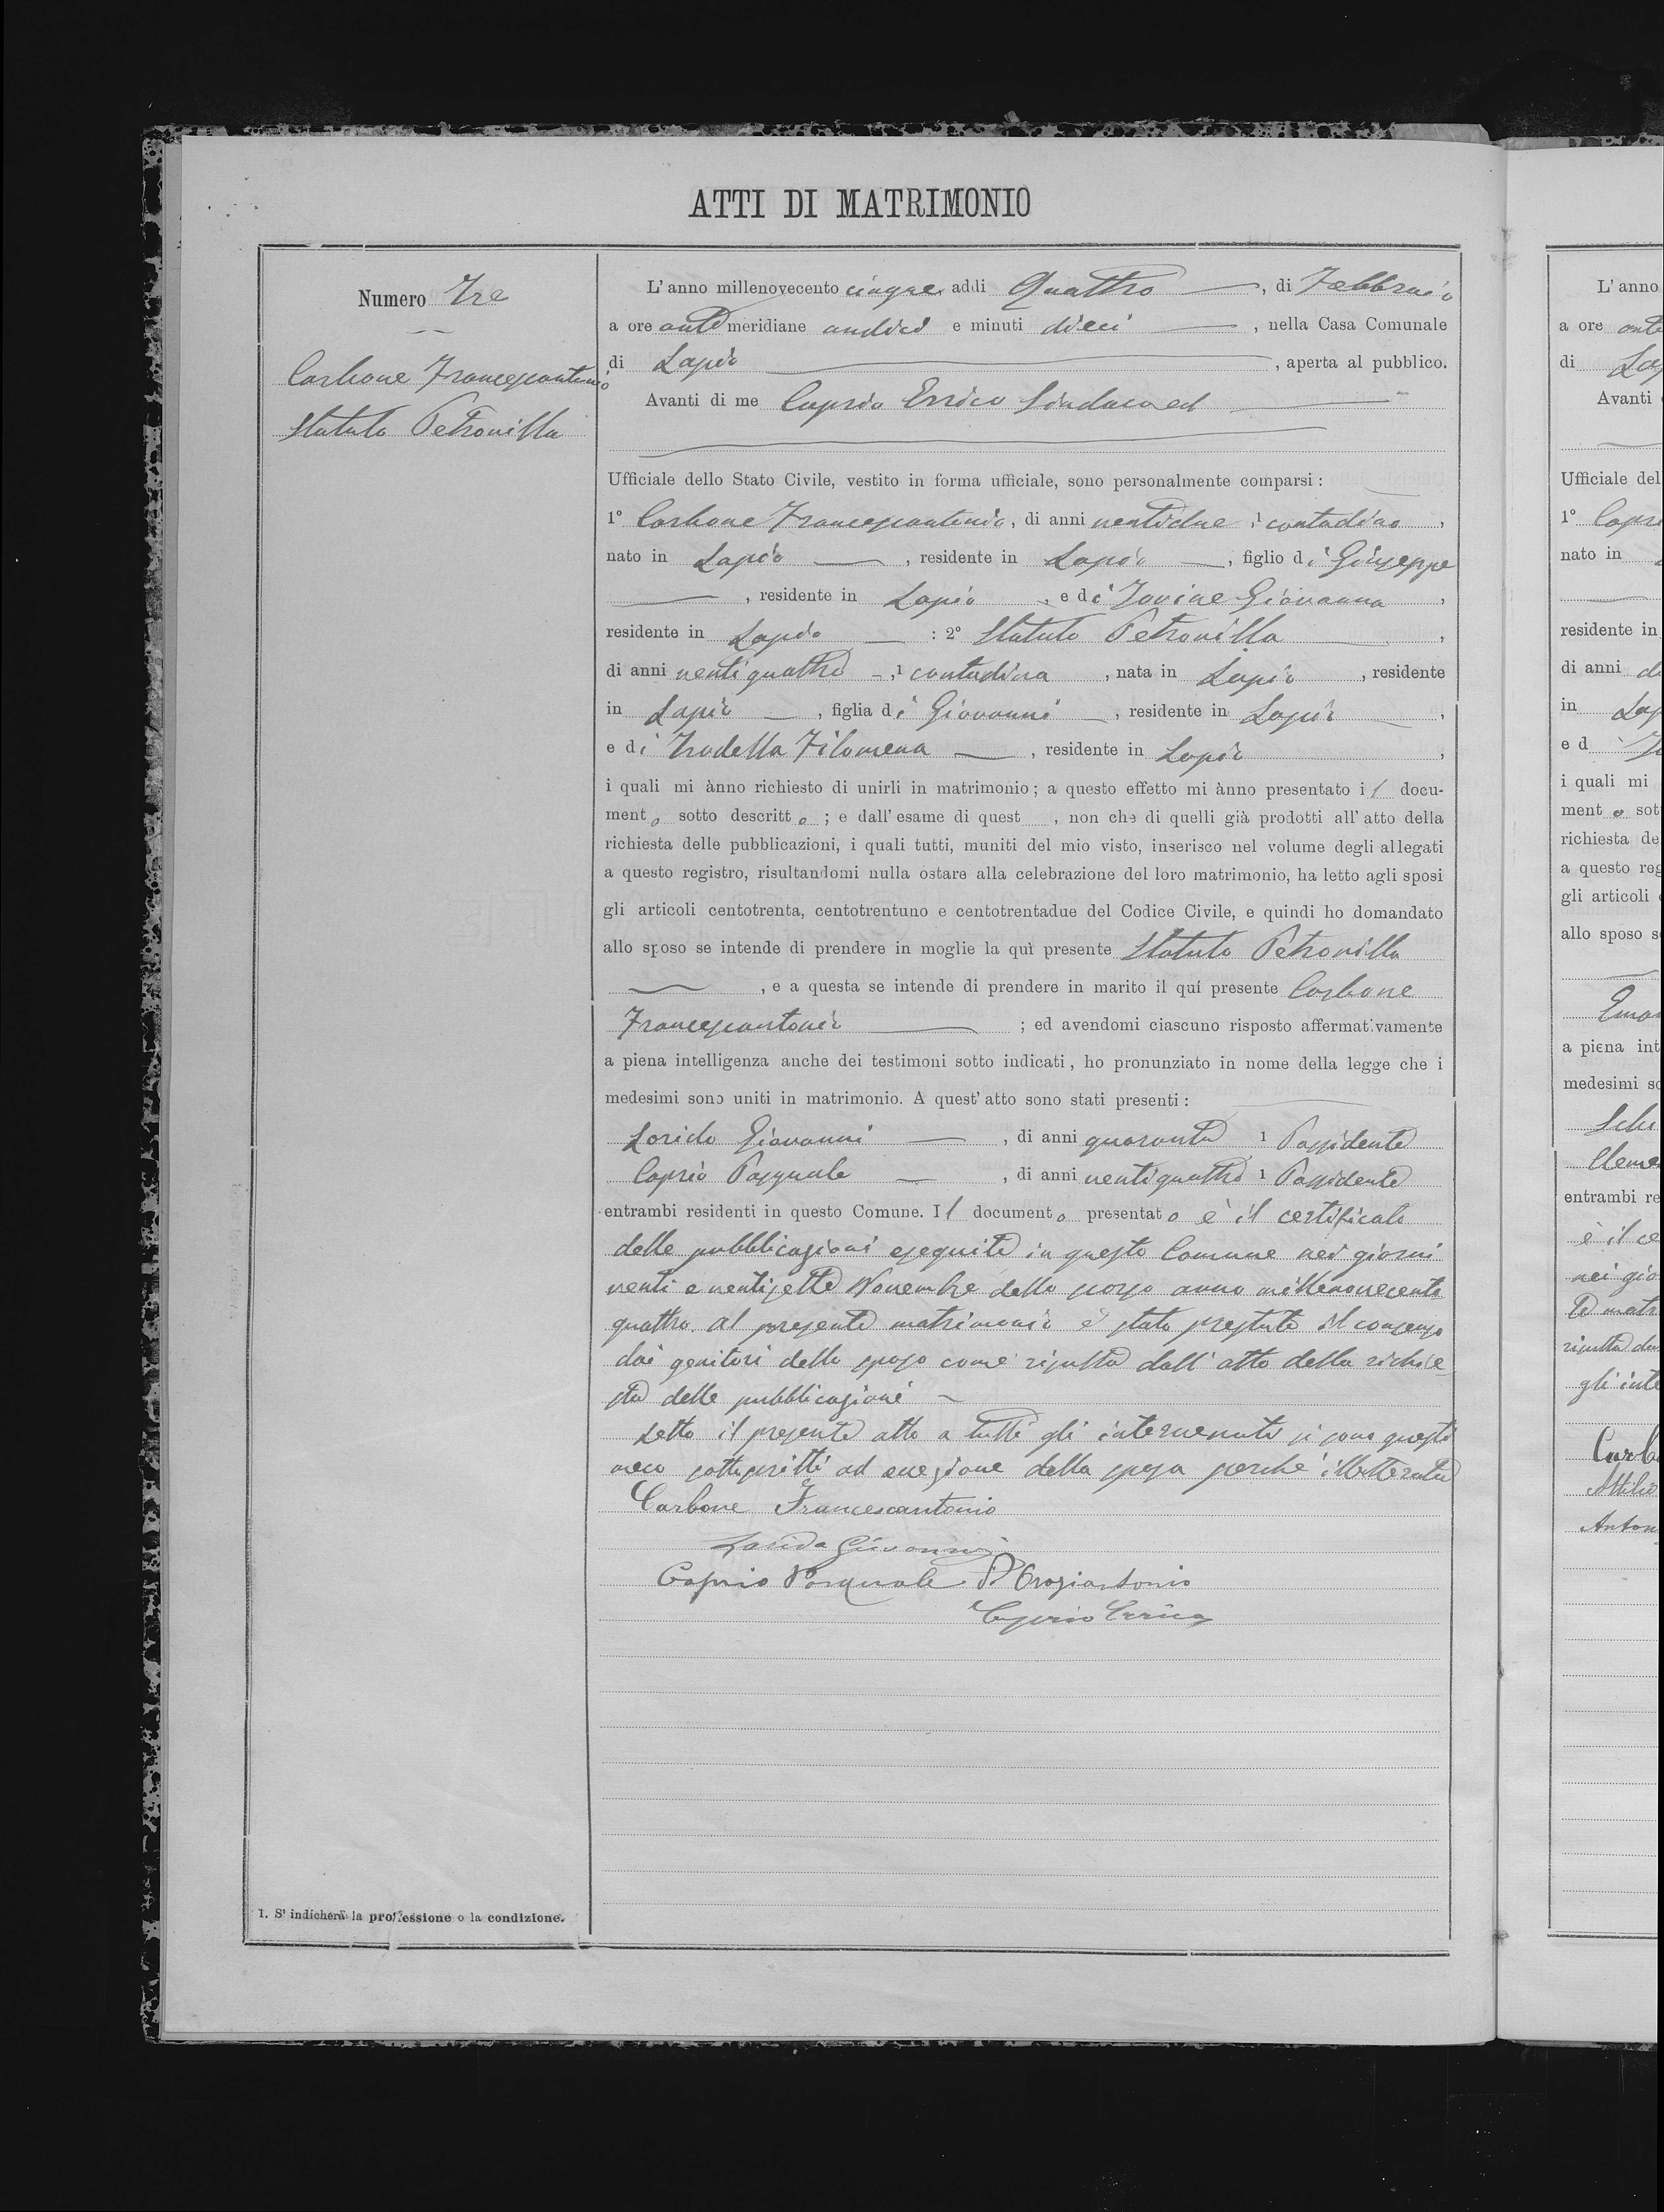 ATTI DI MATRIMONIO
Numero Tre
Carbone Francescantonio
Statuto Petronilla
L'anno millenovecento cinque addì Quattro, di Febbraio
a ore antemeridiane undici e minuti dieci, nella Casa Comunale
di Lapio, aperta al pubblico.
Avanti di me Caprio Errico Sindaco ed
Ufficiale dello Stato Civile, vestito in forma ufficiale, sono personalmente comparsi:
1° Carbone Francescantonio, di anni ventidue, 1 contadino,
nato in Lapio, residente in Lapio, figlio di Giuseppe
, residente in Lapio, e di Iovine Giovanna,
residente in Lapio : 2° Statuto Petronilla,
di anni ventiquattro, 1 contadina, nata in Lapio, residente
in Lapio, figlia di Giovanni, residente in Lapio,
e di Trodella Filomena, residente in Lapio,
i quali mi ànno richiesto di unirli in matrimonio; a questo effetto mi ànno presentato il docu-
mento sotto descritto; e dall'esame di quest, non che di quelli già prodotti all'atto della
richiesta delle pubblicazioni, i quali tutti, muniti del mio visto, inserisco nel volume degli allegati
a questo registro, risultandomi nulla ostare alla celebrazione del loro matrimonio, ha letto agli sposi
gli articoli centotrenta, centotrentuno e centotrentadue del Codice Civile, e quindi ho domandato
allo sposo se intende di prendere in moglie la quì presente Statuto Petronilla
, e a questa se intende di prendere in marito il quí presente Carbone
Francescantonio ; ed avendomi ciascuno risposto affermativamente
a piena intelligenza anche dei testimoni sotto indicati, ho pronunziato in nome della legge che i
medesimi sono uniti in matrimonio. A quest'atto sono stati presenti:
Lorido Giovanni, di anni quaranta 1 Possidente
Caprio Pasquale, di anni ventiquattro 1 Possidente
entrambi residenti in questo Comune. Il documento presentato è il certificato
delle pubblicazioni eseguite in questo Comune nei giorni
venti e ventisette Novembre dello scorso anno millenovecento
quattro. Al presente matrimonio è stato prestato il consenso
dai genitori dello sposo come risulta dall'atto della richie
sta delle pubblicazioni
Letto il presente atto a tutti gli intervenuti si sono questi
meco sottoscritti ad eccezione della sposa perché illetterata
Carbone Francescantonio
Giovanni
Caprio Pasquale
Caprio Errico
1. S' indicherà la professione o la condizione.
L'anno
a ore ante
di Lap
Avanti
Ufficiale del
1° Capri
nato in
residente in
di anni
in Lap
e d
i quali mi
mento sot
richiesta de
a questo reg
gli articoli
allo sposo s
a piena int
medesimi so
Cleme
entrambi re
è il ce
nei gio
risulta da
gli inte
Carb
Attilio
Anton